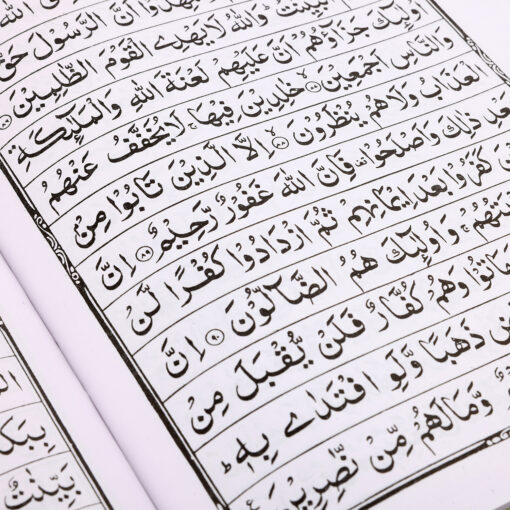 الرَّسُوْلَ حَقٌّ
وَاللّٰهُ لَا يَهْدِى الْقَوْمَ الظّٰلِمِيْنَ ۝٨٦
اُولٰٓئِكَ جَزَآؤُهُمْ اَنَّ عَلَيْهِمْ لَعْنَةَ اللّٰهِ وَالْمَلٰٓئِكَةِ
وَالنَّاسِ اَجْمَعِيْنَ ۝٨٧ خٰلِدِيْنَ فِيْهَا لَا يُخَفَّفُ عَنْهُمُ
الْعَذَابُ وَلَا هُمْ يُنْظَرُوْنَ ۝٨٨ اِلَّا الَّذِيْنَ تَابُوْا مِنْۢ
بَعْدِ ذٰلِكَ وَاَصْلَحُوْا فَاِنَّ اللّٰهَ غَفُوْرٌ رَّحِيْمٌ ۝٨٩ اِنَّ
كَفَرُوْا بَعْدَ اِيْمَانِهِمْ ثُمَّ ازْدَادُوْا كُفْرًا لَّنْ
وَاُولٰٓئِكَ هُمُ الضَّآلُّوْنَ ۝٩٠ اِنَّ
مَاتُوْا وَهُمْ كُفَّارٌ فَلَنْ يُّقْبَلَ مِنْ
ذَهَبًا وَّلَوِ افْتَدٰى بِهٖ ؕ
وَّمَا لَهُمْ مِّنْ نّٰصِرِيْنَ
بَيِّنٰتٌ